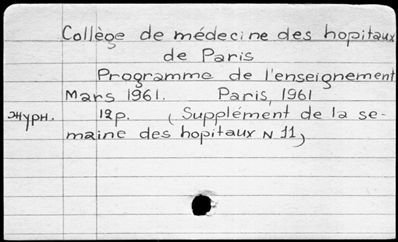 Collège de médecine des hopitaux
de Paris
Programme de l'enseignement
Mars 1961. Paris, 1961
Жури. 12p. (Supplément de la se-
maine des hopitaux N 11)